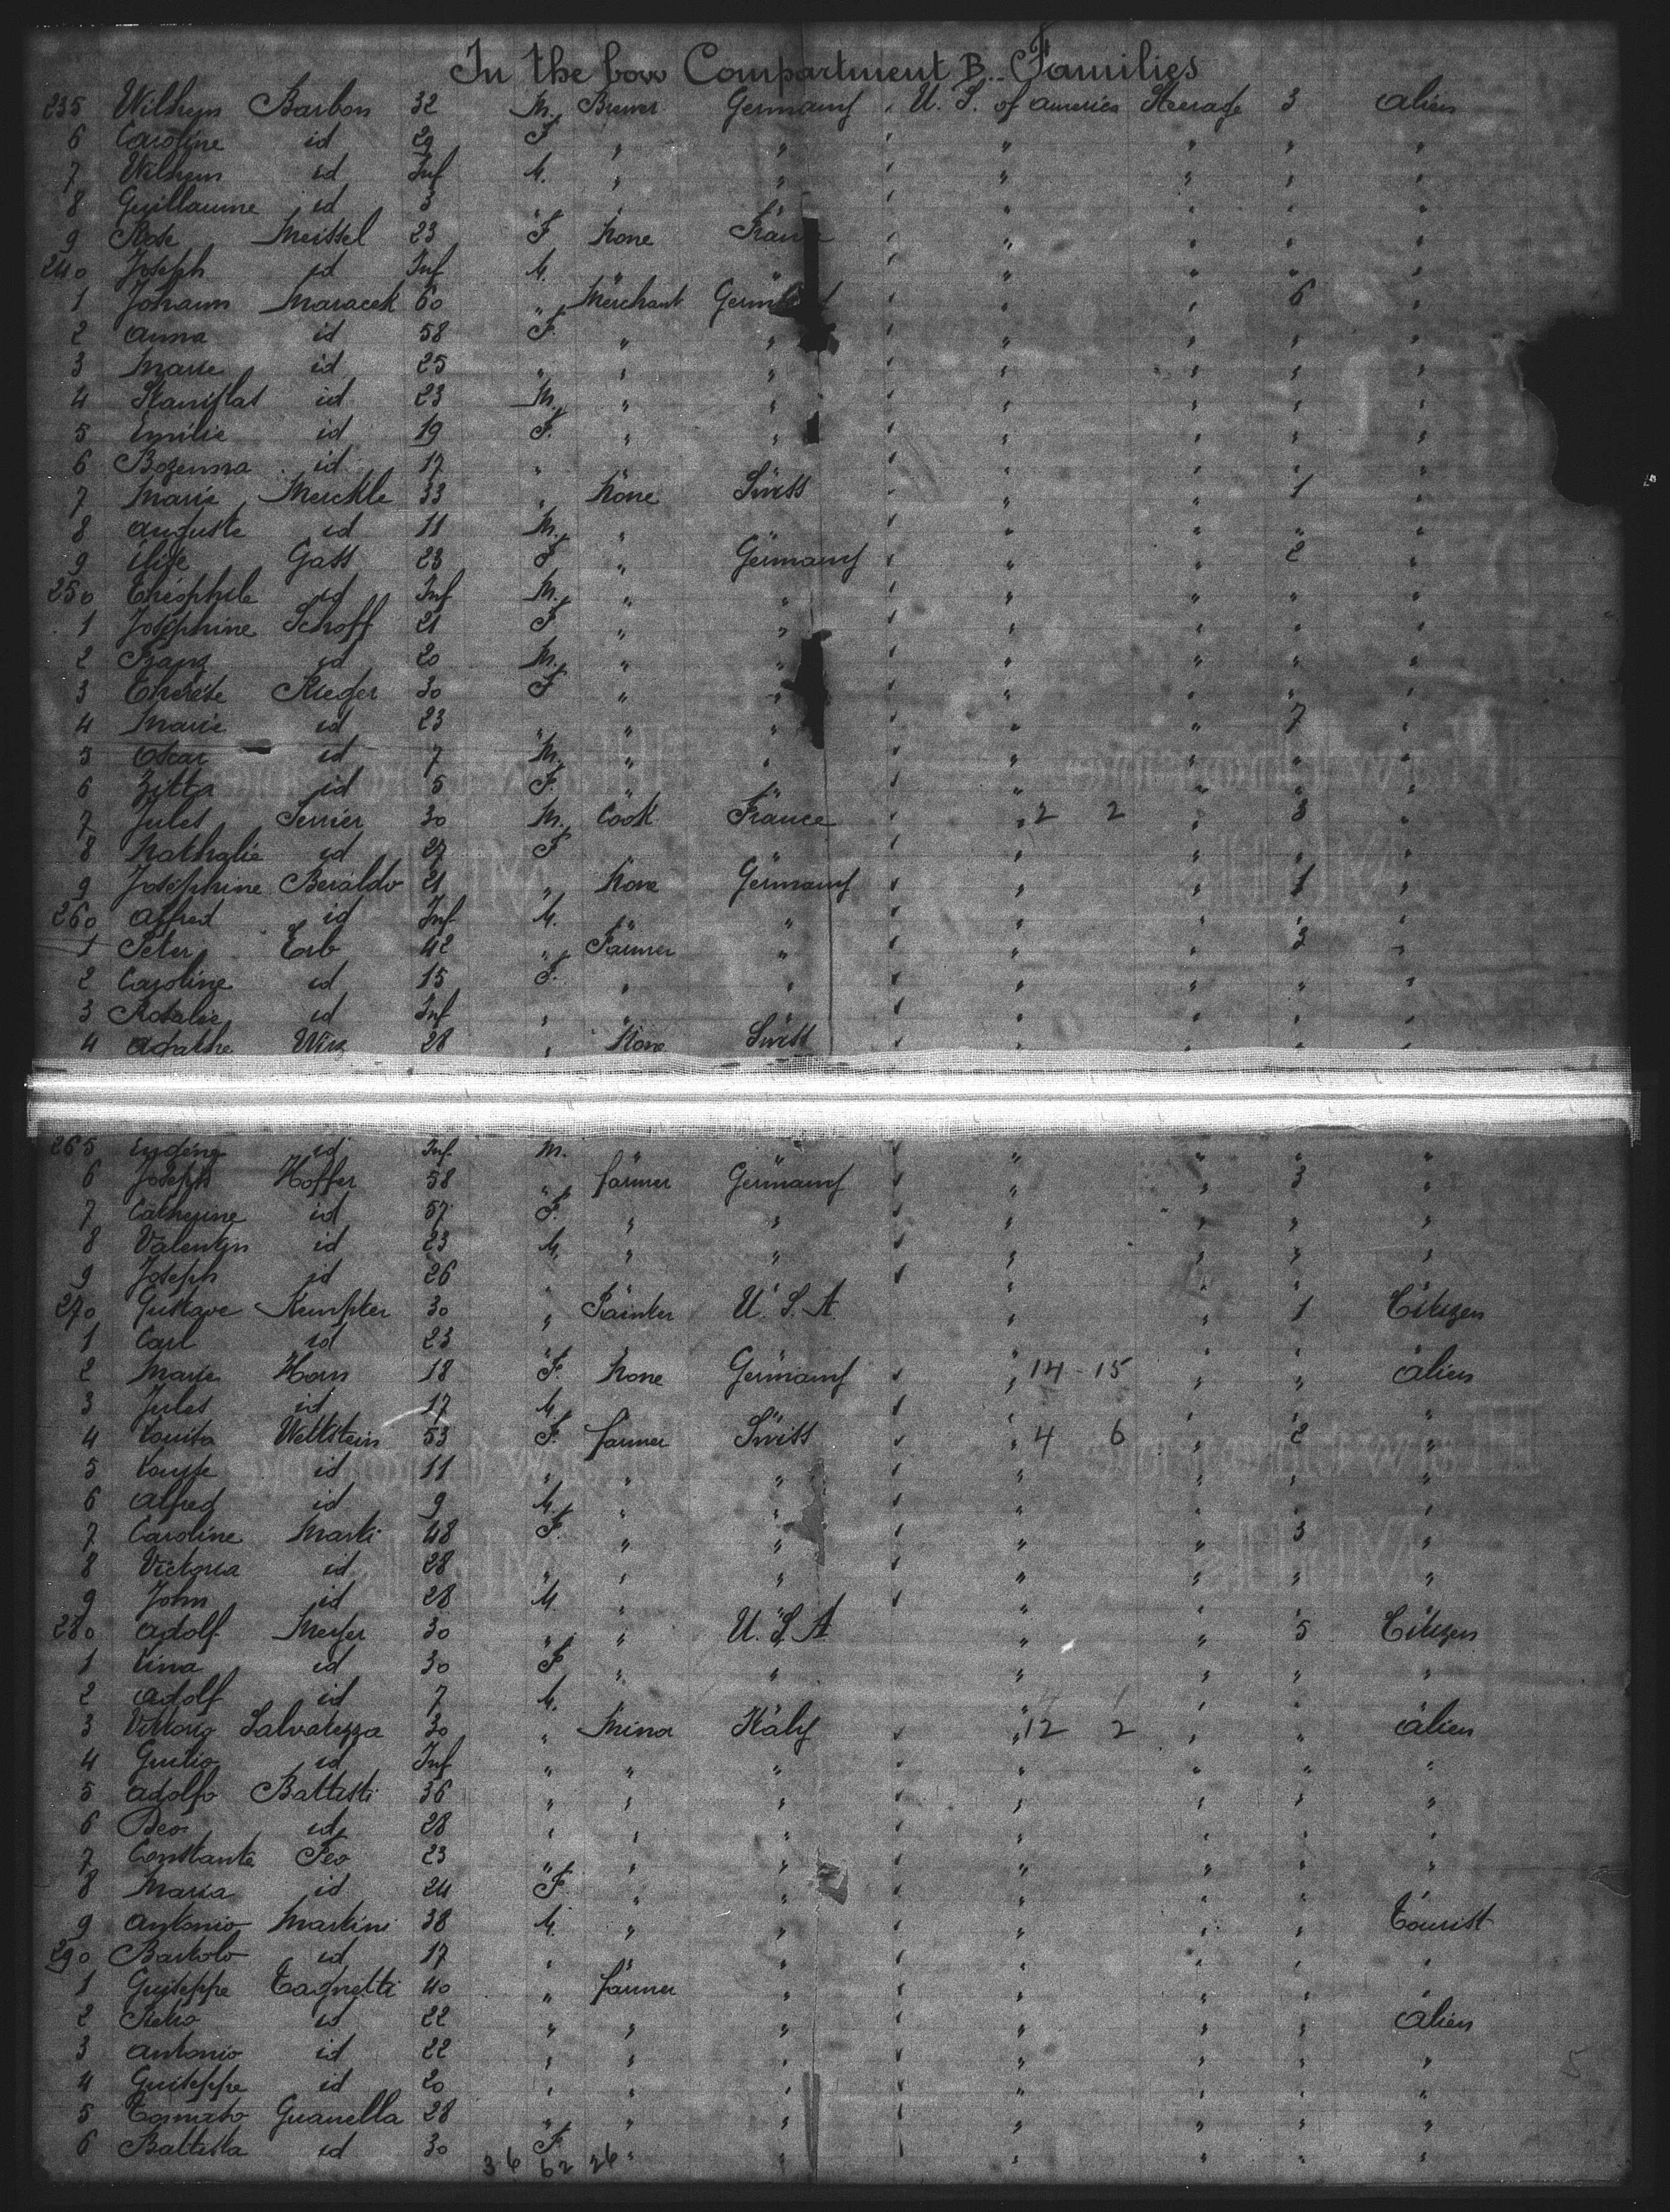 In the bow Compartment B.. Families
235 Wilhem Barbon 32 M. Brewer Germany " U. S. of america Steerage 3 alien
6 Caroline id 29 F " " " " " " "
7 Wilhem id Inf M. " " " " " " "
8 Guillaume id 3 " " " " " " " "
9 Rose Meissel 23 F None France " " " " "
240 Joseph id Inf M. " " " " " " "
1 Johann Maracek 60 " Merchant " " " 6 "
2 anna id 58 F. " " " " " " "
3 Marie id 25 " " " " " " " "
4 Stanislas id 23 M. " " " " " " "
5 Emilie id 19 F. " " " " " " "
6 Bozenna id 17 " " " " " " " "
7 Marie Merckle 33 " None Swiss " " " 1 "
8 auguste id 11 M. " " " " " " "
9 Elise Gass 23 F " Germany " " " 2 "
250 Théophile id Inf M. " " " " " " "
1 Joséphine Schoff 21 F. " " " " " " "
2 Franz id 20 M. " " " " " " "
3 Thérèse Rieger 30 F " " " " " " "
4 Marie id 23 " " " " " " 7 "
5 Oscar id 7 M. " " " " " " "
6 Zitta id 5 F. " " " " " " "
7 Jules 30 M. Cook France " " 2 2 " 3 "
8 Nathalie id 27 F " " " " " " "
9 Joséphine Beraldo 21 " None Germany " " " 1 "
260 Alfred id Inf M. " " " " " " "
1 Peter Erb 42 " Farmer " " " " 3 "
2 Caroline id 15 F. " " " " " " "
3 Rosalie id Inf " " " " " " " "
4 agathe Wirz 28 " None Swiss " " " " "
265 id Inf M. " " " " " " "
6 Joseph Hoffer 58 " farmer Germany " " " 3 "
7 Catherine id 57 F. " " " " " " "
8 Valentin id 23 M. " " " " " " "
9 Joseph id 26 " " " " " " " "
270 Gustave Kempter 30 " Painter U. S. A. " " 1 Citizen
1 Carl id 23 " " " " " " "
2 Marie Horn 18 F. None Germany " " 14 - 15 " " alien
3 Jules id 17 M. " " " " " " "
4 Louisa Wettstein 53 F. farmer Swiss " " 4 6 " 2 "
5 Louise id 11 " " " " " " " "
6 Alfred id 9 M. " " " " " " "
7 Caroline Marti 48 F. " " " " " 3 "
8 Victoria id 28 " " " " " " " "
9 John id 28 M. " " " " " " "
280 adolf Meyer 30 " " U. S. A " " 5 Citizen
1 Lina id 30 F " " " " " "
2 adolf id 7 M. " " " " " "
3 Vittorio Salvatezza 30 " Minor Italy " " 12 2 " " alien
4 Guilio id Inf " " " " " " " "
5 adolfo Battisti 36 " " " " " " " "
6 id 28 " " " " " " " "
7 Constante Feo 23 " " " " " " " "
8 Maria id 24 F " " " " " " "
9 Antonio Martini 38 M. " " " " " " Tourist
290 Bartolo id 17 " " " " " " " "
1 Guiseppe Tagnetti 40 " farmer " " " " " "
2 Pietro id 22 " " " " " " " alien
3 antonio id 22 " " " " " " " "
4 Guiseppe id 20 " " " " " " " "
5 Guanella 28 " " " " " " " "
6 Battista id 30 F. " " " " " " "
36 62 26
5